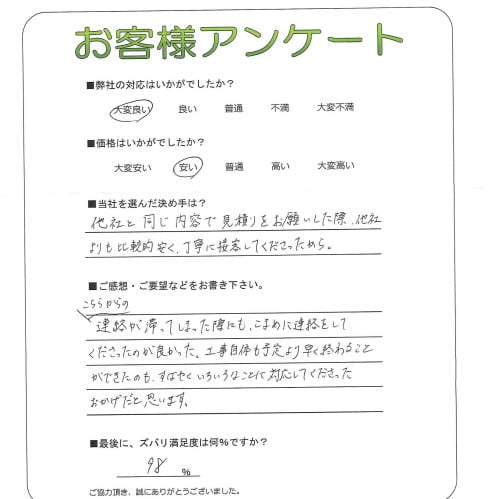 お客様アンケート
■弊社の対応はいかがでしたか？
大変良い 良い 普通 不満 大変不満
■価格はいかがでしたか？
大変安い 安い 普通 高い 大変高い
■当社を選んだ決め手は？
他社と同じ内容で見積りをお願いした際、他社
よりも比較的安く、丁寧に接客してくださったから。
■ご感想・ご要望などをお書き下さい。
こちらからの
連絡が滞ってしまった際にも、こまめに連絡をして
くださったのが良かった。工事自体も予定より早く終わること
ができたのも、すばやくいろいろなことに対応してくださった
おかげだと思います。
■最後に、ズバリ満足度は何％ですか？
98 ％
ご協力頂き、誠にありがとうございました。